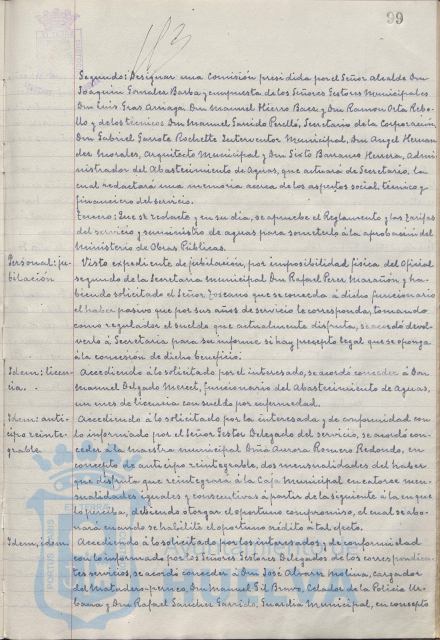 99
Segundo: Designar una Comisión presidida por el Señor Alcalde Don
Joaquin González Barba y compuesta de los Señores Gestores Municipales
Don Luis Gras Arriaga, Don Manuel Hierro Baez y Don Ramon Orta Rebo-
llo y de los técnicos Don Manuel Garrido Perelló, Secretario de la Corporación
Don Gabriel Garrote Rochette Interventor Municipal, Don Angel Hernan-
dez Morales, Arquitecto Municipal y Don Sixto Barranco Herrera, Admi-
nistrador del Abastecimiento de Aguas, que actuará de Secretario, la
cual redactará una memoria acerca de los aspectos social, técnico y
financiero del servicio.
Tercero: Que se redacte y en su dia, se apruebe el Reglamento y las tarifas
del servicio y suministro de aguas para someterlo á la aprobación del
Ministerio de Obras Públicas.
Personal: ju-
bilación
Visto expediente de jubilación, por imposibilidad física del Oficial
segundo de la Secretaria municipal Don Rafael Perez Marañón y ha-
biendo solicitado el Señor Toscano que se conceda á dicho funcionario
el haber pasivo que por sus años de servicio le corresponda, tomando
como regulador el sueldo que actualmente disfruta, se acordó devol-
verlo á Secretaría para su informe si hay precepto legal que se oponga
á la concesión de dicho beneficio.
Idem: licen-
cia.
Accediendo á lo solicitado por el interesado, se acordó conceder á Don
Manuel Delgado Meret, funcionario del Abastecimiento de Aguas,
un mes de licencia con sueldo por enfermedad.
Idem: anti-
cipo reinte-
grable
Accediendo á lo solicitado por la interesada y de conformidad con
lo informado por el Señor Gestor Delegado del servicio, se acordó con-
ceder á la maestra municipal Doña Aurora Romero Redondo, en
concepto de anticipo reintegrable, dos mensualidades del haber
que disfruta que reintegrará á la Caja Municipal en catorce men-
sualidades iguales y consecutivas á partir de la siguiente á la en que
lo perciba, debiendo otorgar el oportuno compromiso, el cual se abo-
nará cuando se habilite el oportuno crédito á tal efecto.
Idem, idem.
Accediendo á lo solicitado por los interesados, y de conformidad
con lo informado por los Señores Gestores Delegados de los correspondien-
tes servicios, se acordó conceder á Don José Alvarez Molina, cargador
del Matadero-perneo, Don Manuel Gil Bravo, Celador de la Policia Ur-
bana y Don Rafael Sanchez Garrido, Guardia Municipal, en concepto